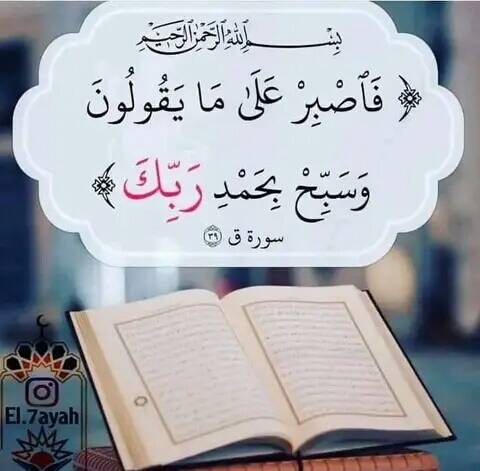 بِسْمِ اللَّهِ الرَّحْمَٰنِ الرَّحِيمِ
﴿ فَٱصْبِرْ عَلَىٰ مَا يَقُولُونَ
وَسَبِّحْ بِحَمْدِ رَبِّكَ ﴾
سورة ق ٣٩
El.7ayah